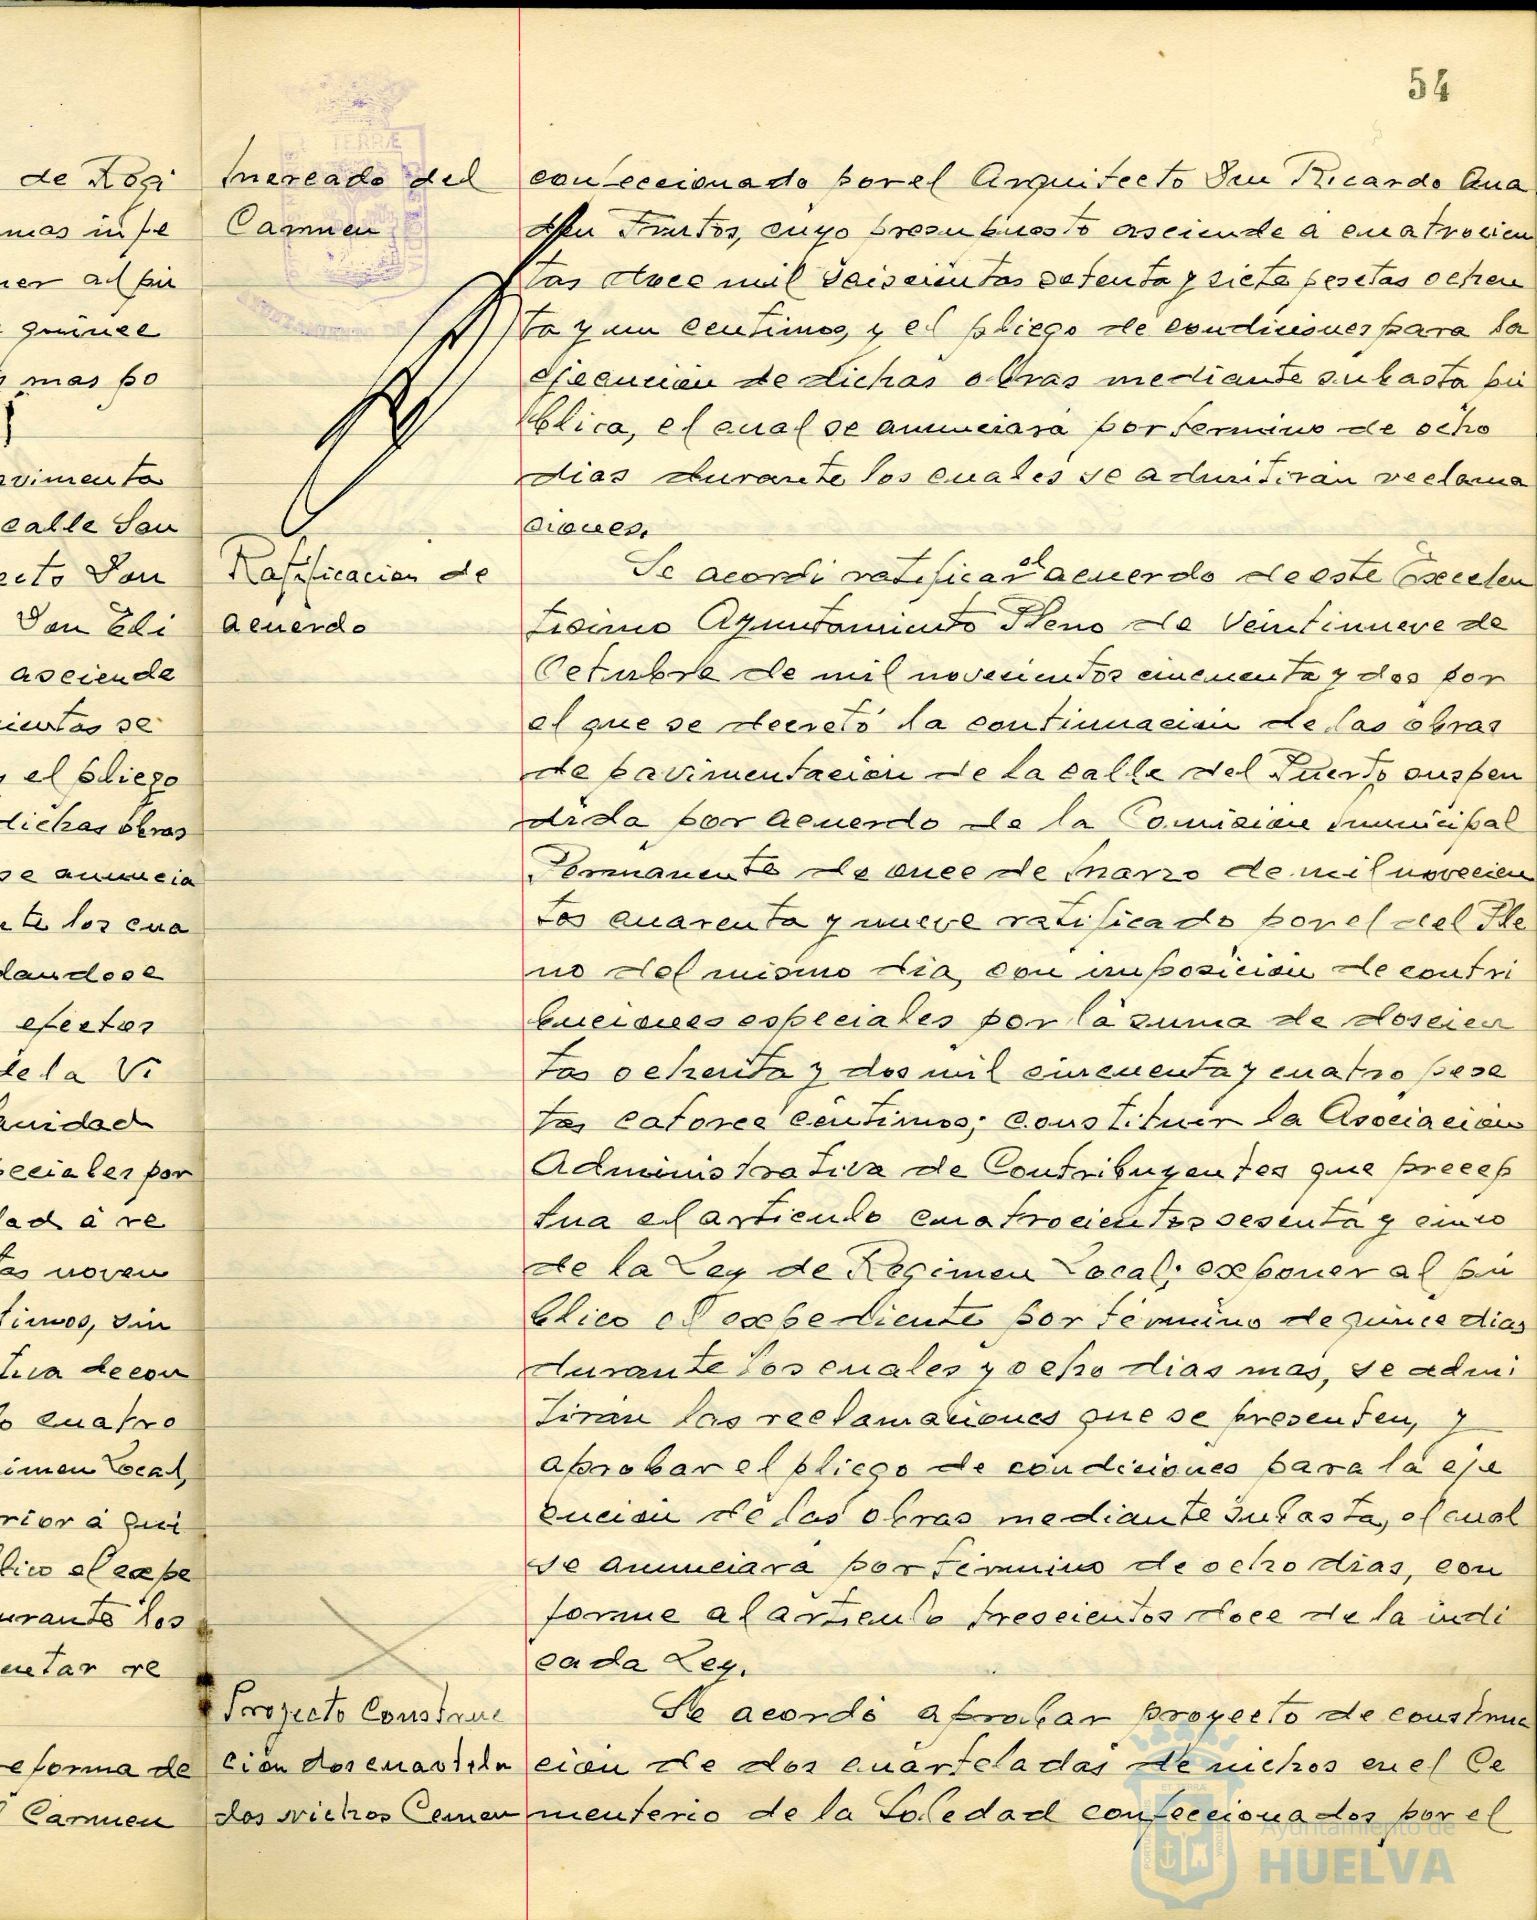 54
de Regi
mas in fe
ner al pú
quince
mas po
vimenta
calle San
ecto Don
Don Eli
asciende
cientas se
y el pliego
dichas obras
se anuncia
nte los cua
dandose
efectos
de la Vi
eciales por
dad á re
tas noven
timos, sin
tiva de con
lo cuatro
imen Local,
rior á qui
lico el expe
urante los
entar re
eforma de
l Carmen
Mercado del
Carmen
Ratificacion de
acuerdo
Proyecto Construc
ción dos cuartela
das nichos Cemen
confeccionado por el Arquitecto Don Ricardo Ana
don Frutos, cuyo presupuesto asciende a cuatrocien
tas doce mil seiscientas setenta y siete pesetas ochen
ta y un centimos, y el pliego de condiciones para la
ejecución de dichas obras mediante subasta pú
blica, el cual se anunciará por termino de ocho
dias durante los cuales se admitirán reclama
ciones.
Se acordi ratificar el acuerdo de este Excelen
tisimo Ayuntamiento Pleno de Veintinueve de
Octubre de mil novecientos cincuenta y dos por
el que se decretó la continuación de las obras
de pavimentación de la calle del Puerto suspen
dida por acuerdo de la Comisión Municipal
Permanente de once de Marzo de mil novecien
tos cuarenta y nueve ratificado por el del Ple
no del mismo dia, con imposición de contri
buciones especiales por la suma de doscien
tas ochenta y dos mil cincuenta y cuatro pese
tas catorce céntimos; constituir la Asociación
Administrativa de Contribuyentes que precep
tua el articulo cuatrocientos sesenta y cinco
de la Ley de Regimen Local; exponer al pú
blico el expediente por término de quince dias
durante los cuales y ocho dias mas, se admi
tirán las reclamaciones que se presenten, y
aprobar el pliego de condiciones para la eje
cución de las obras mediante subasta, el cual
se anunciará por término de ocho dias, con
forme al articulo trescientos doce de la indi
cada Ley.
Se acordó aprobar proyecto de construc
ción de dos cuarteladas de nichos en el Ce
menterio de la Soledad confeccionados por el
Ayuntamiento de
HUELVA